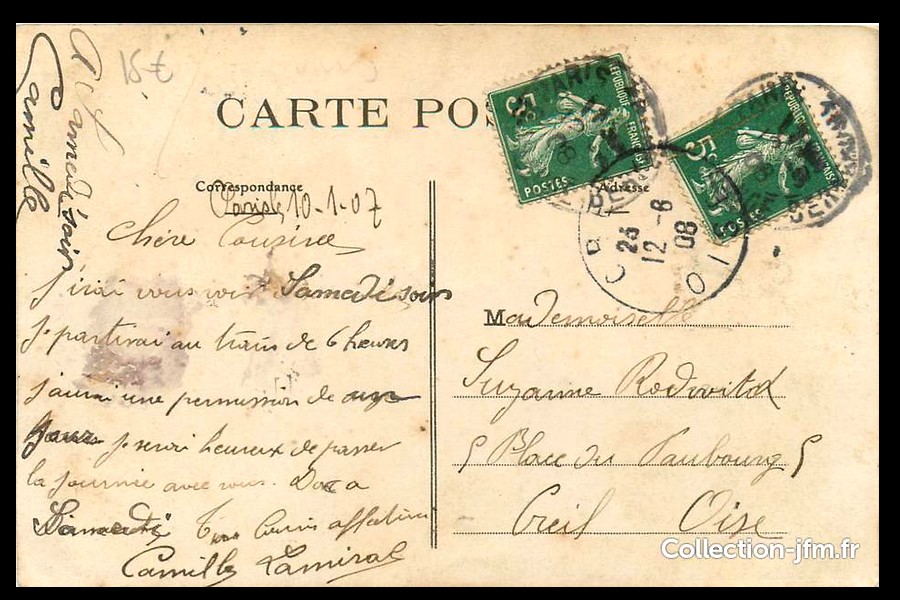 15 €
A Samedi soir
Camille
CARTE POS
Correspondance
Adresse
Paris 10-1-07
Chère Cousine
j'irai vous voir Samedi soir
je partirai au train de 6 heures
j'aurai une permission de
jours je serai heureux de passer
la journée avec vous. Donc a
Samedi Ton Cousin affectueux
Camille Lamiral
5c
RÉPUBLIQUE FRANÇAISE
POSTES
PARIS
5c
RÉPUBLIQUE FRANÇAISE
POSTES
CREIL
23
12 -6
08
OISE
Mademoiselle
Suzanne
5 Place du Faubourg 5
Creil Oise
Collection-jfm.fr